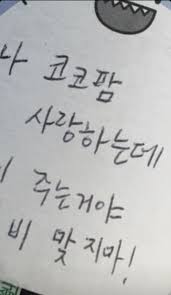 나 코코팜
사랑하는데
주는거야
비 맞지마!